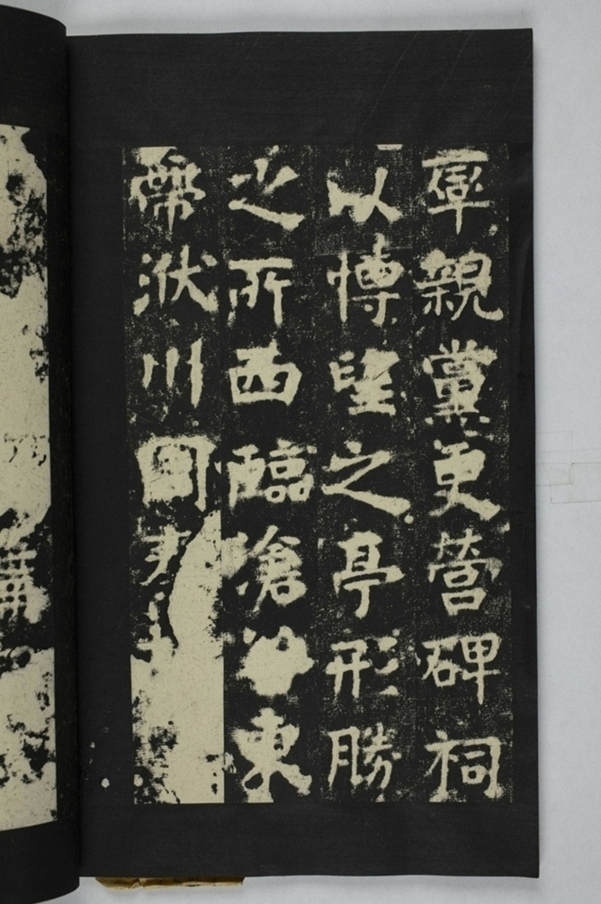 宰親黨更營碑祠
以博望之亭形勝
之所西臨滄谷東
帶洑川周